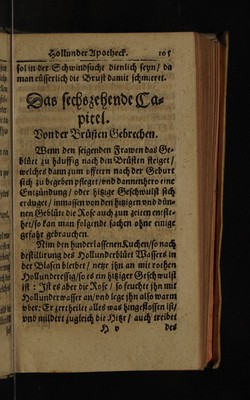 Hollunder Apotheck. 105
sol in der Schwindsucht dienlich seyn / da
man eüsserlich die Brust damit schmieret.
Das sechszehende Ca-
pitel.
Von der Brüsten Gebrechen.
Wenn den seigenden Frawen das Ge-
blüet zu häuffig nach den Brüsten steiget /
welches dann zum öfftern nach der Geburt
sich zu begeben pfleget / und dannenhero eine
Entzündung / oder hitzige Geschwulst sich
eräuget / inmassen von den hitzigen und dün-
nen Geblüte die Rose auch zun zeiten entste-
het / so kan man folgende sachen ohne einige
gefahr gebrauchen.
Nim den hinderlassenen Kuchen / so nach
destillirung des Hollunderblüet Wassers in
der Blasen bleibet / netze ihn an mit rothen
Hollunderessig / so es ein hitziger Geschwulst
ist : Ist es aber die Rose / so feuchte ihn mit
Hollunderwasser an / und lege ihn also warm
über: Er zertheilet alles was eingeschossen ist /
und mildert zugleich die Hitze / auch treibet
H v des